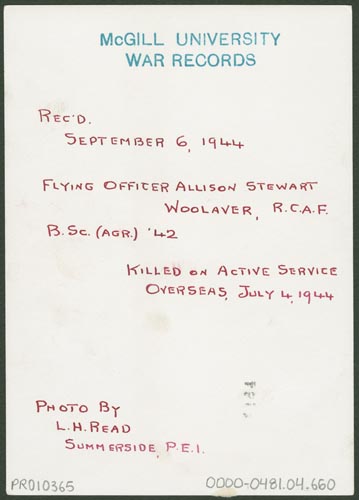 McGILL UNIVERSITY
WAR RECORDS
REC'D.
SEPTEMBER 6, 1944
FLYING OFFICER ALLISON STEWART
WOOLAVER, R.C.A.F.
B.SC. (AGR.) '42
KILLED ON ACTIVE SERVICE
OVERSEAS, JULY 4, 1944
PHOTO BY
L.H. READ
SUMMERSIDE, P.E.I.
PR010365
0000-0481.04.660